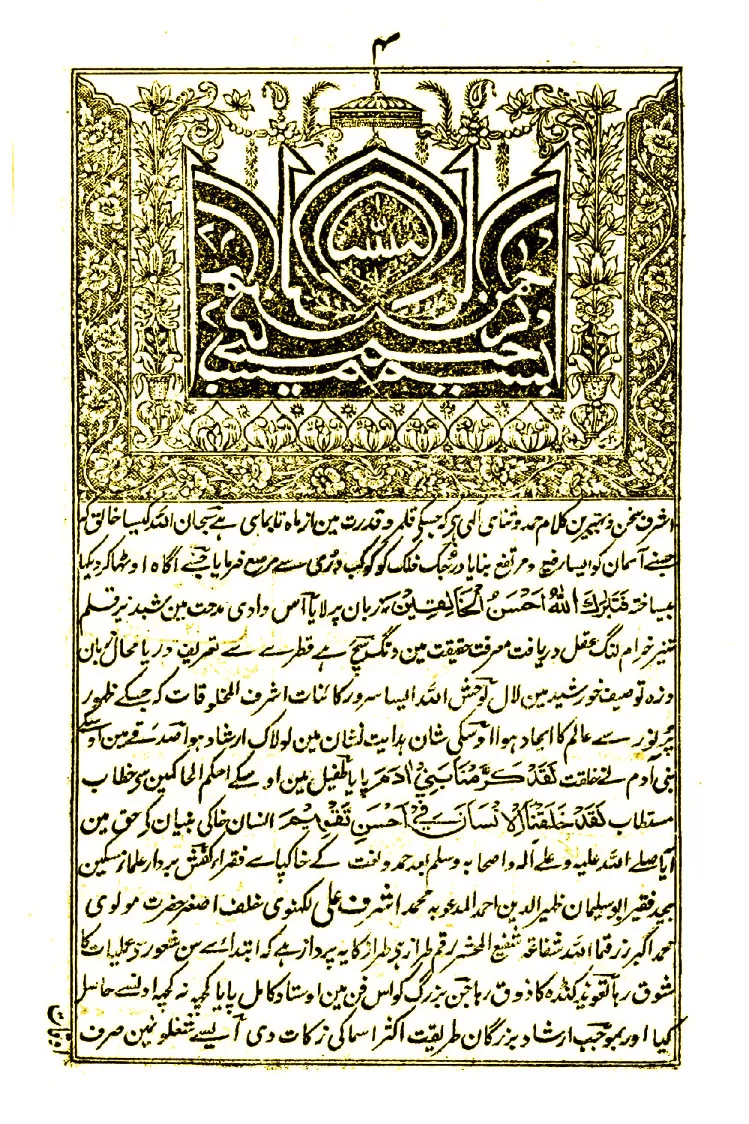 ۴
بسم الله الرحمن الرحيم
اشرف سخن و بہترین کلام حمد و ثنای الٰہی ہی کہ جسکی قلمرو قدرت مین از ماہ تا بماہی ہے سبحان اللہ کیسا خالق کہ
جسنے آسمان کو ایسا رفیع و مرتفع بنایا درجک فلک کو کوکب دری سے مرصع فرمایا جسنے آگاہ اوٹھا کر دیکھا
بیساختہ فَتَبَارَكَ اللهُ اَحْسَنُ الْخَالِقِيْنَ زبان پر لایا اس وادی مدحت مین شبدیز قلم
تیز خرام لنگ عقل دریافت معرفت حقیقت مین دنگ سچ ہے قطرے سے تعریف دریا محال زبان
ذرہ توصیف خورشید مین لال لوحش اللہ ایسا سرور کائنات اشرف المخلوقات کہ جسکے ظہور
پر نور سے عالم کا ایجاد ہوا اوسکی شان ہدایت نشان مین لولاک ارشاد ہوا صدقے مین اوسکے
بنی آدم نے خلعت لَقَدْ كَرَّمْنَا بَنِيْ اٰدَمَ پایا طفیل مین اوسکے احکم الحاکمین سی خطاب
مستطاب لَقَدْ خَلَقْنَا الْاِنْسَانَ فِيْ اَحْسَنِ تَقْوِيْمٍ انسان خاکی بنیان کے حق مین
آیا صلے اللہ علیہ و علے آلہ و اصحابہ وسلم بعد حمد و نعت کے خاکپاے فقراء کفش بردار علماء مسکین
فقیر ابو سلیمان ظہیر الدین احمد المدعو بہ محمد اشرف علی لکھنوی خلف اصغر حضرت مولوی
محمد اکبر رزقنا اللہ شفاعۃ شفیع المحشر رقم طرازی طراز کا یہ پرداز ہے کہ ابتداے سن شعور سے عملیات کا
شوق رہا تعویذ گنڈہ کا ذوق رہا جن بزرگ کو اس فن مین اوستاد کامل پایا کچھ نہ کچھ اونسے حاصل
کیا اور بموجب ارشاد بزرگان طریقت اکثر اسما کی زکات دی آپ ایسے شغلونین صرف